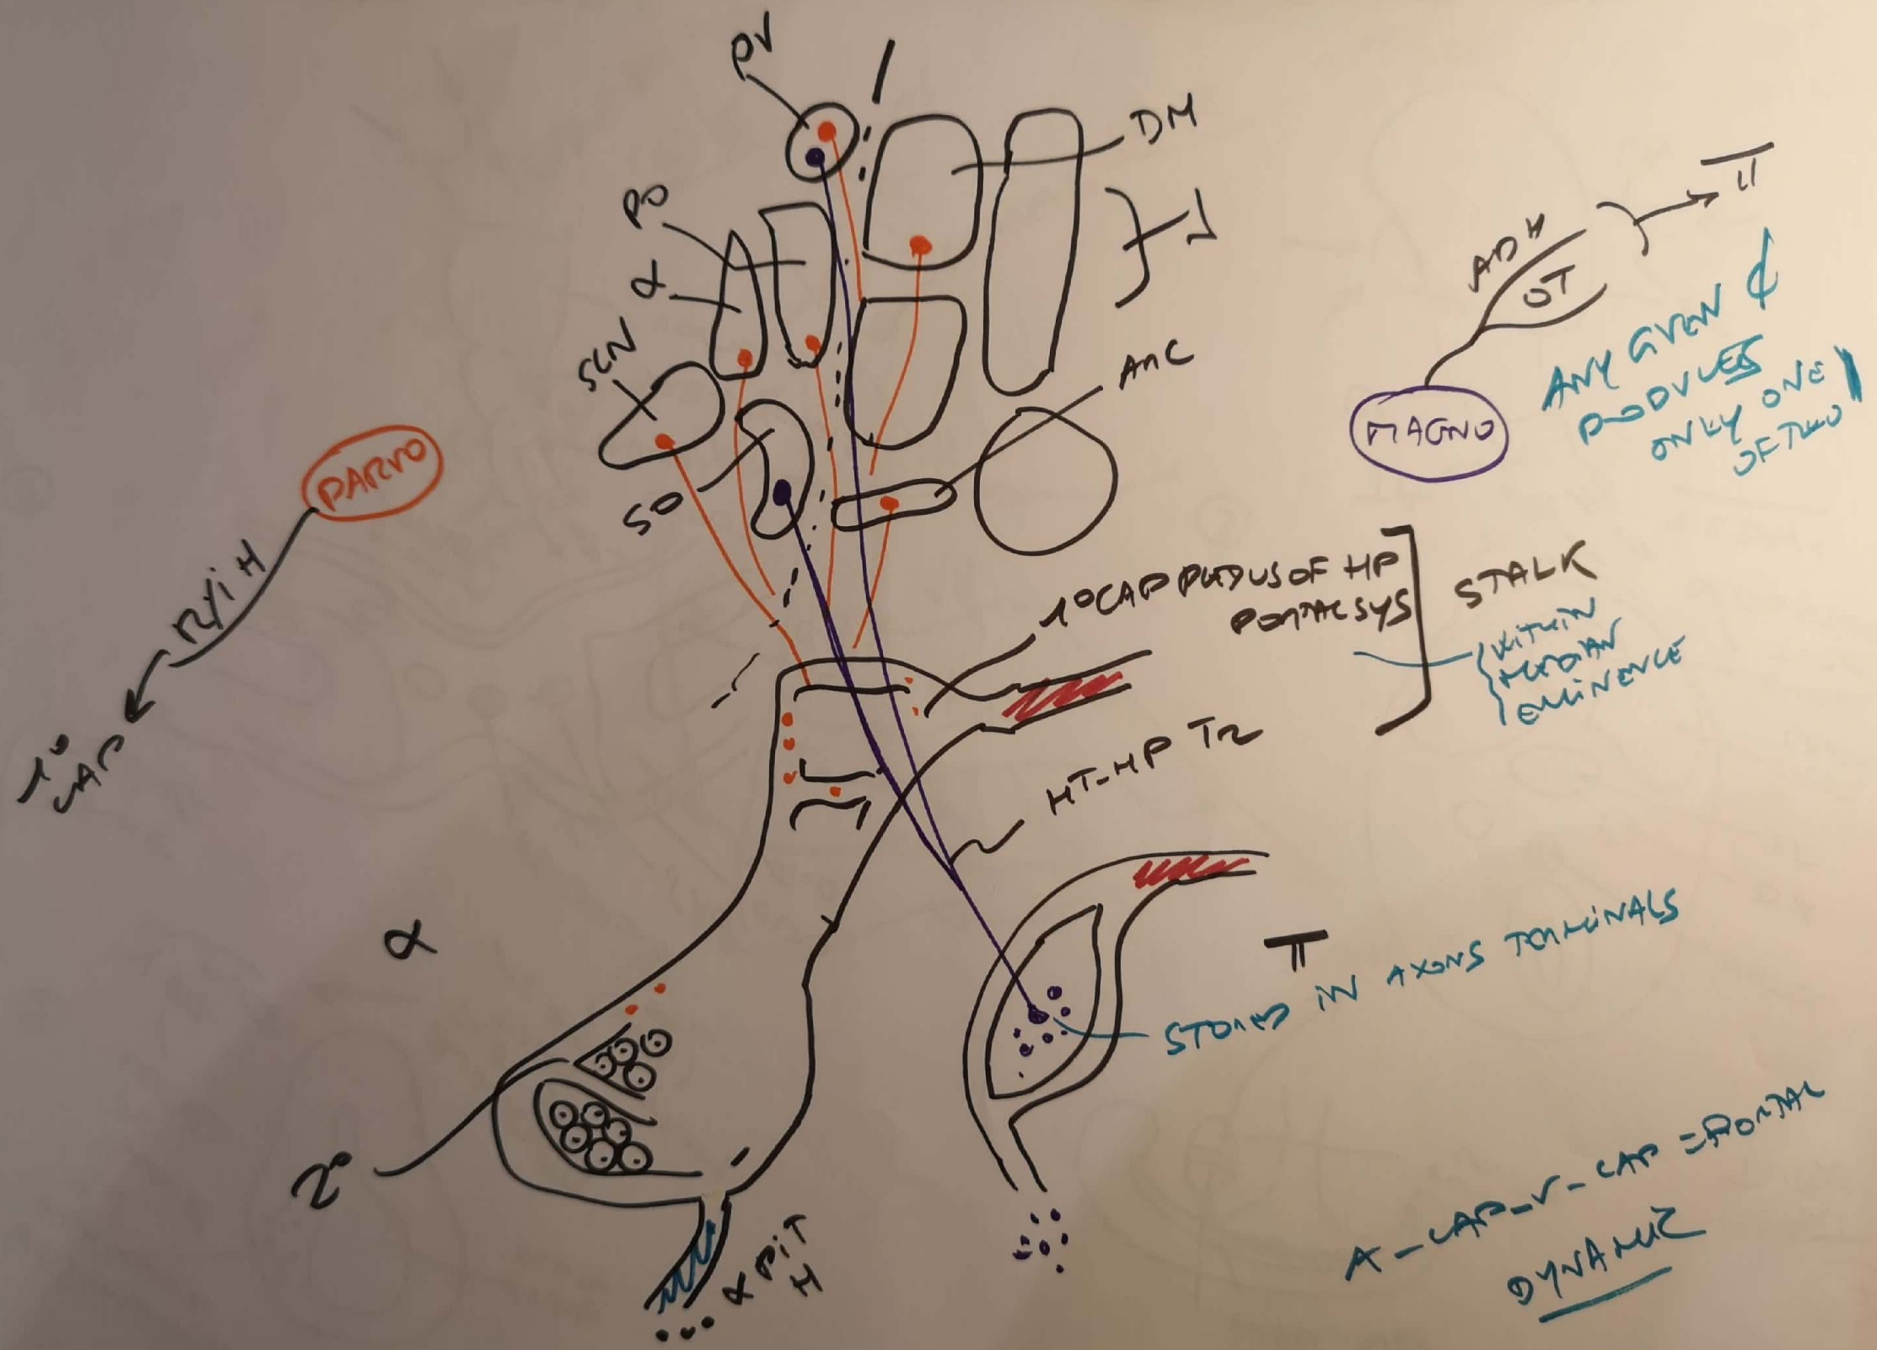 PV
DM
PO
α
SCN
SO
ARC
ADH
OT
MAGNO
ANY GIVEN ₵
PRODUCES
ONLY ONE
OF TWO
PARVO
1°
CAP
1° CAP PLEXUS OF HP
PORTAL SYS
STALK
WITHIN
MEDIAN
EMINENCE
HT-HP TR
α
π
STORED IN AXONS TERMINALS
2°
α PIT
H
A-CAP-V-CAP = PORTAL
DYNAMIC